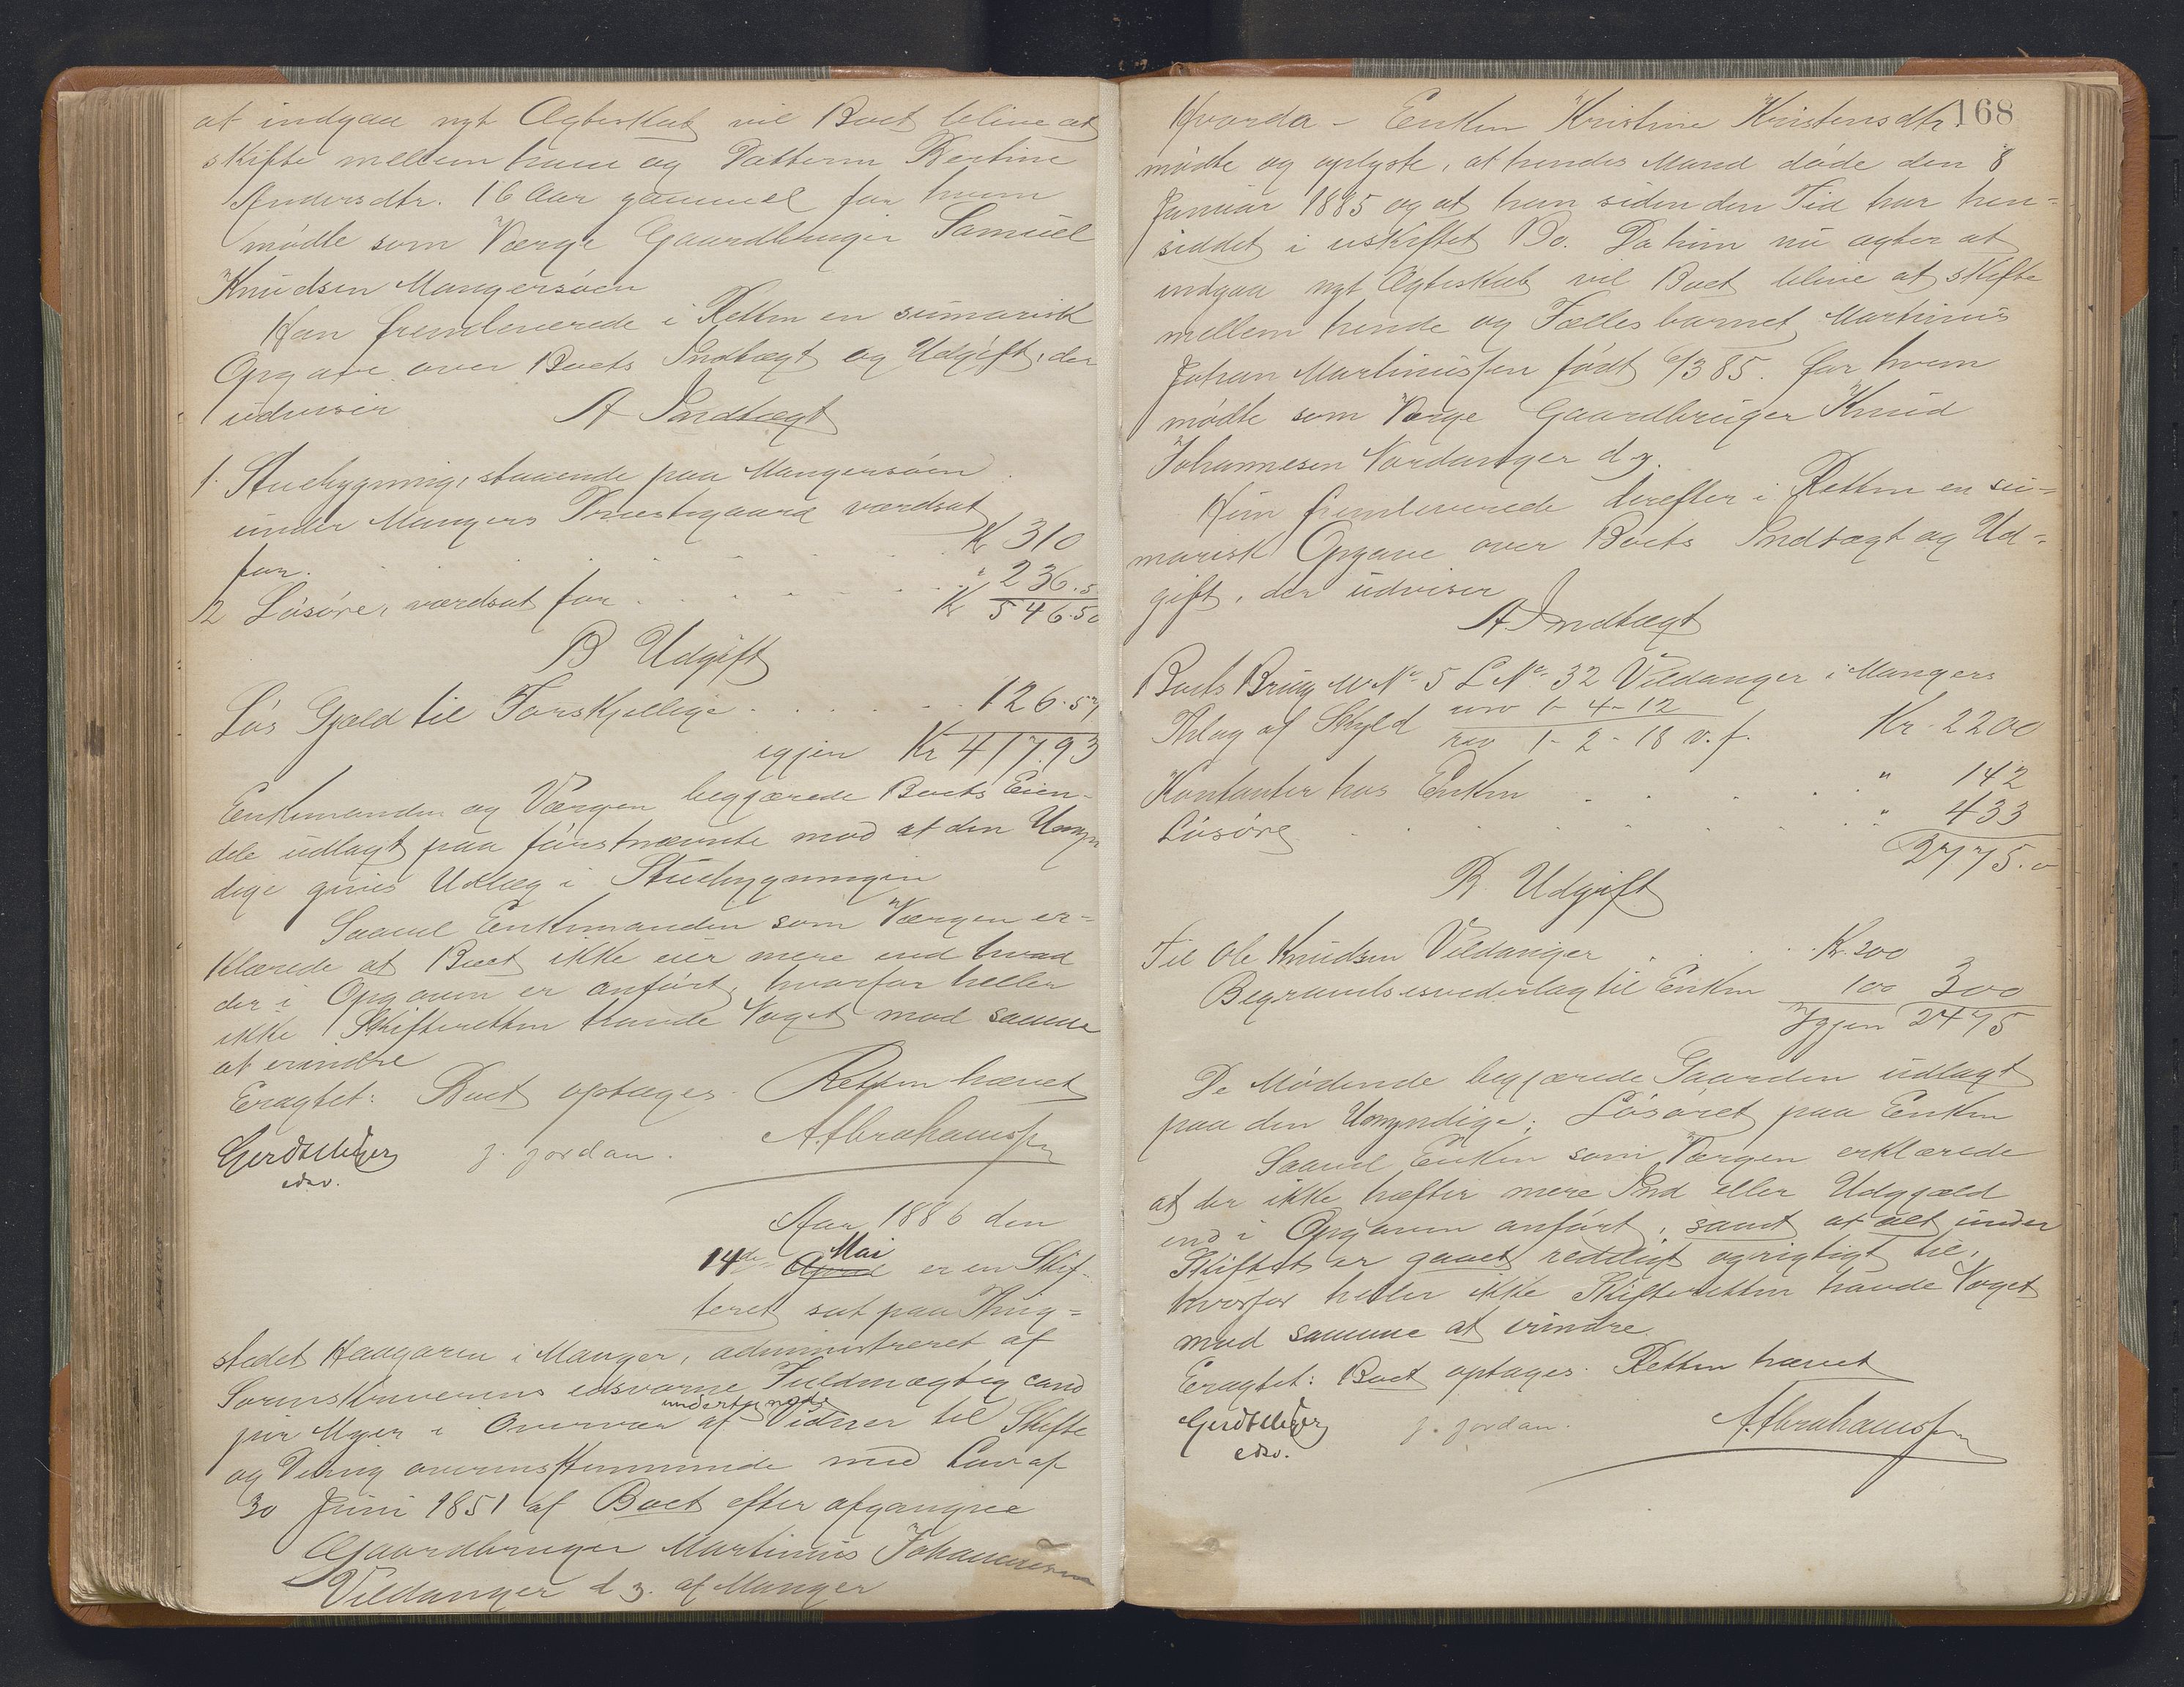 at indgaa nyt Ægteskab vil Boet blive at
skifte mellem ham og Datteren Bertine
Andersdtr. 16 Aar gammel for hvem
mødte som Værge Gaardbruger Samuel
Knudsen Mangersøen
Han fremleverede i Retten en sumarisk
Opgave over Boets Indtægt og Udgift, der
udviser A Indtægt
1. Stuebygning, staaende paa Mangersøen
under Mangers Præstegaard værdsat
for. Kr 310
2 Løsøre, værdsat for " 236.5
Kr 546.50
B Udgift
Løs Gjæld til Forskjellige 126.57
igjen Kr 417.93
Enkemanden og Værgen begjærede Boets Eien-
dele udlagt paa førstnævnte mod at den Umyn
dige gives Udlæg i Stuebygningen
Saavel Enkemanden som Værgen er=
klærede at Boet ikke eier mere end hvad
der i Opgaven er anført, hvorfor heller
ikke Skifteretten havde Noget mod samme
at erindre
Eragtet: Boet optages. Retten hævet
Gerdt Meyer J. Jordan. A. Abrahamssen
edsv.
Aar 1886 den
14de Mai April er en Skif-
teret sat paa Thing=
stedet Haagaren i Manger, administreret af
Sorenskriverens edsvorne Fuldmægtig cand
jur Myer i Overvær af undertegnede Vidner til Skifte
og Deling overensstemmende med Lov af
30 Juni 1851 af Boet efter afgangne
Gaardbruger Martinus Johannesen
Vildanger d y. af Manger
168
Hvorda - Enken Kristine Kristensdtr.
mødte og oplyste, at hendes Mand døde den 8
Januar 1885 og at hun siden den Tid har hen=
siddet i uskiftet Bo. Da hun nu agter at
indgaa nyt Ægteskab vil Boet blive at skifte
mellem hende og Fællesbarnet Martinus
Johan Martinussen født 6/3 85. for hvem
mødte som Værge Gaardbruger Knud
Johannesen Nordanger d y.
Hun fremleverede derefter i Retten en su=
marisk Opgave over Boets Indtægt og Ud=
gift, der udviser
A Indtægt
Boets Brug M No 5 L No 32 Vildanger i Mangers
Thlag af Skyld urev 1- 4- 12
rev 1- 2- 18 v.f. Kr. 2200
Kontanter hos Enken " 142
Løsøre " 433
2775.0
B. Udgift
Til Ole Knudsen Vildanger Kr. 200
Begravelsesvederlag til Enken 100 300
Igjen 2475
De Mødende begjærede Gaarden udlagt
paa den Umyndige; Løsøret paa Enken
Saavel Enken som Værgen erklærede
at der ikke hæfter mere Ind eller Udgjæld
end i Opgaven anført, samt at alt under
Skiftet er gaaet redeligt og rigtigt til,
hvorfor heller ikke Skifteretten havde Noget
mod samme at erindre.
Eragtet: Boet optages. Retten hævet
Gerdt Meyer J. Jordan. A. Abrahamssen
edsv.